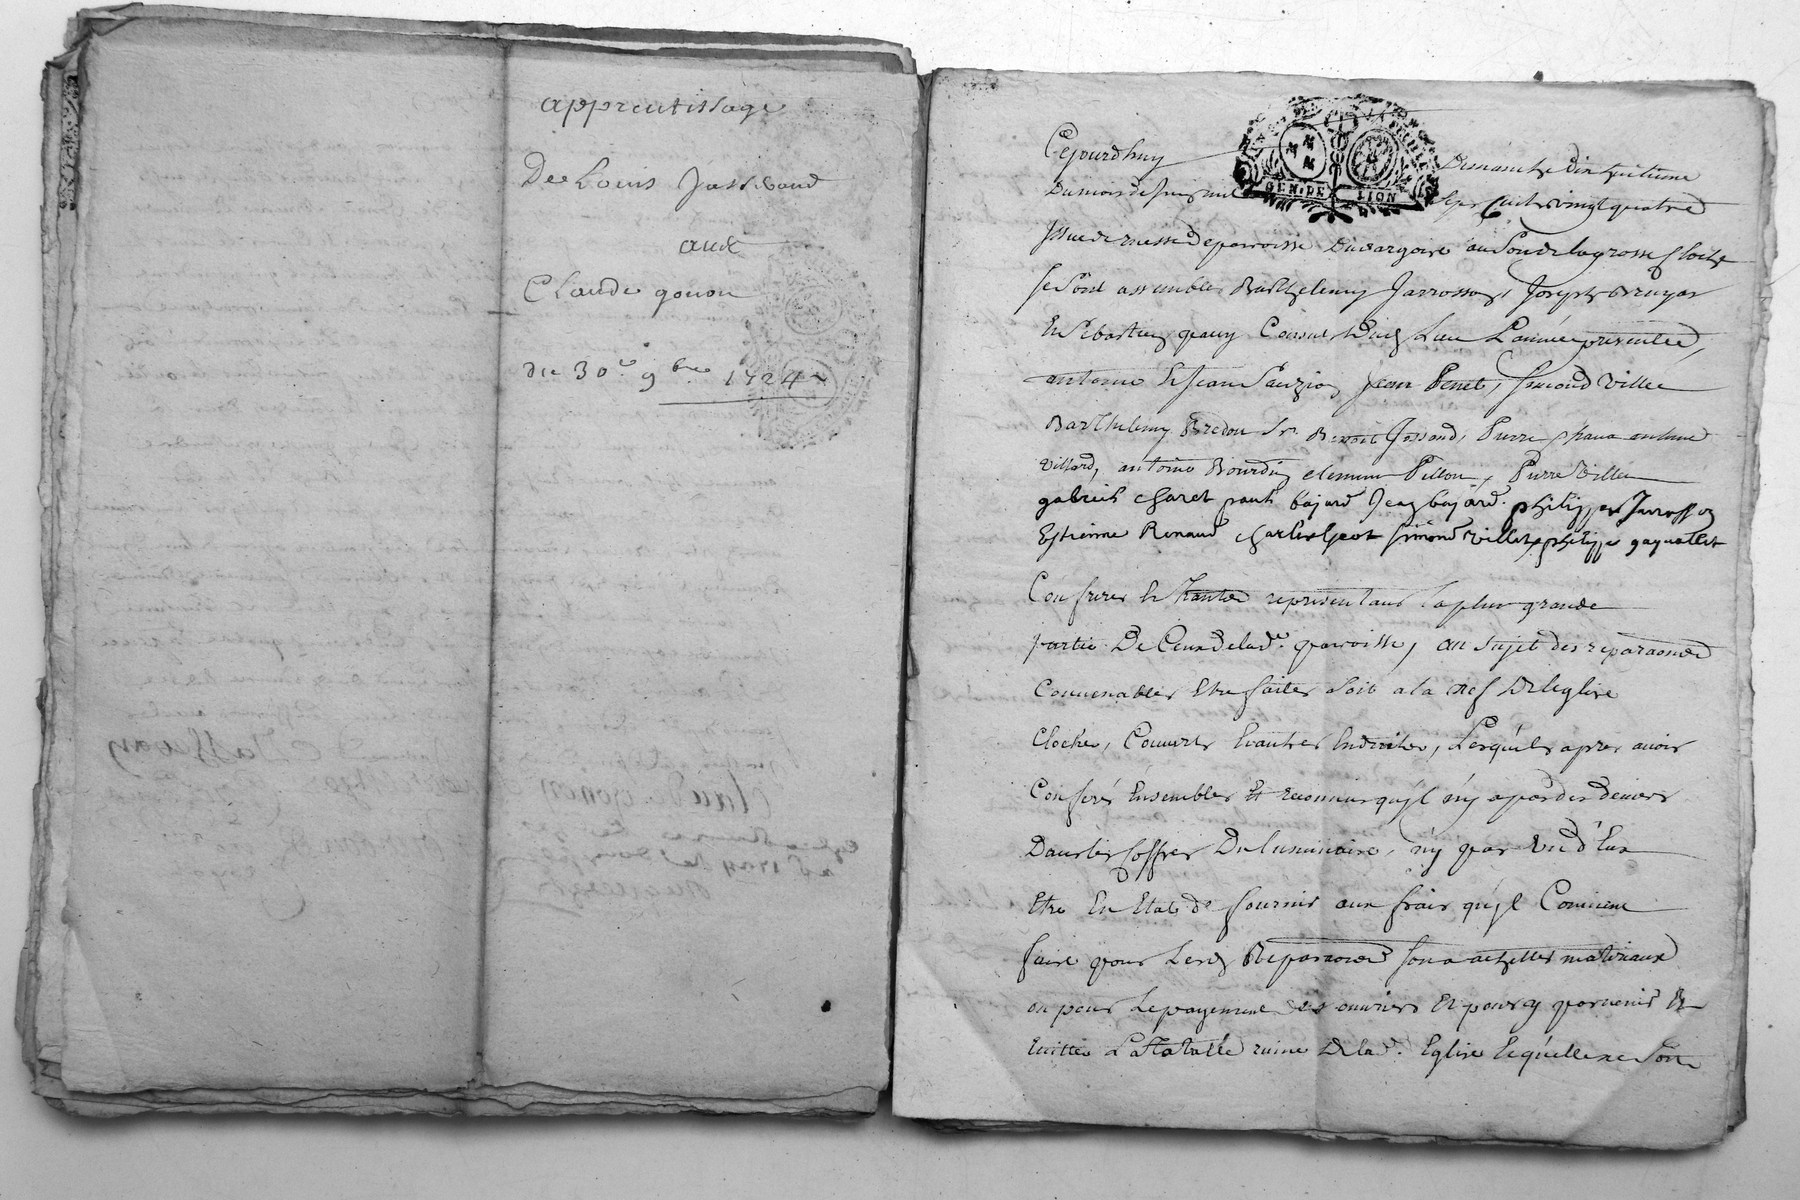 apprentissage
De Louis Jassivaud
aux
Claude gonon
du 30e 9bre 1724
Cejourdhuy Dimanche dix huitieme
Du mois de juin mil sept Cent vingt quatre
GEN. DE LION
Issue de messe de parroisse au son de la grosse Cloche
se sont assemblés Barthelemy Jarrosson, Joseph Bruyas
En Sebastien Consuls L'année presente,
antoine Et Jean Jean Penet, simond Villet
Barthelemy Bredon Sr. Benoit Jossand, Pierre antoine
Villard, antoine Bourdin clement Pillon, Pierre Villet
gabriel charet bajard Jean bajard philippe Jarrosson
Estienne Renaud charles simond Villet philippe
Confreres Et representans la plus grande
partie De Ceux de lade. parroisse, au sujet des reparaons
Convenables Etre faites Soit a la nef De leglise
Cloche, Couverts Et autres Endroits, Lesquels apres avoir
Conferés Ensembles Et reconnus qu'il n'y a pas des deniers
Dans les coffres Du luminaire, n'y pas un d'Eux
Etre En Etat de fournir aux frais qu'il Convient
faire pour Lesd. Reparaons soit a achetter materiaux
ou pour Le payement des ouvriers Et pour y parvenir Et
Evitter La totalle ruine De lad. Eglise Et qu'elle ne soit